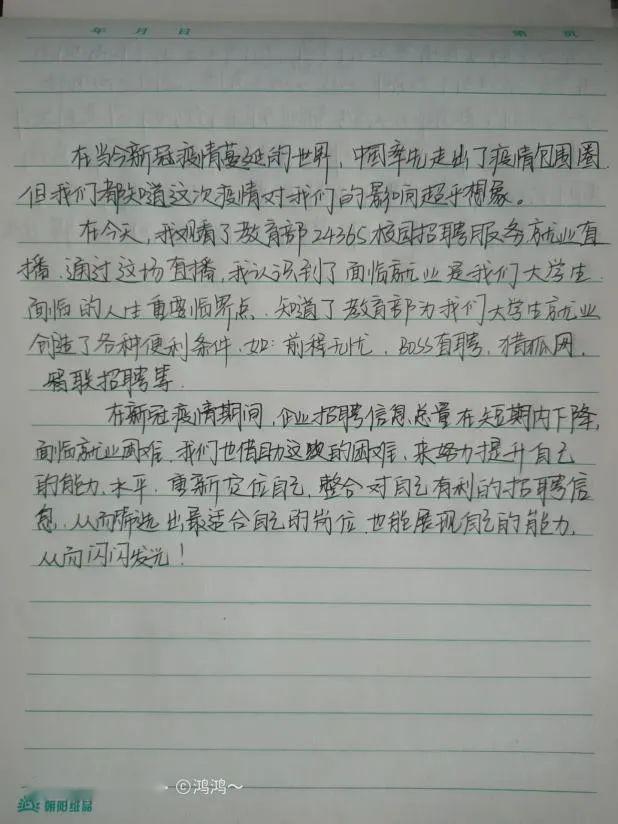 年 月 日 第 页
在当今新冠疫情蔓延的世界，中国率先走出了疫情包围圈
但我们都知道这次疫情对我们的影响超乎想象。
在今天，我观看了教育部24365校园招聘服务就业直
播．通过这场直播，我认识到了面临就业是我们大学生
面临的人生重要临界点．知道了教育部为我们大学生就业
创造了各种便利条件．如：前程无忧．BOSS直聘．猎狐网．
智联招聘等．
在新冠疫情期间，企业招聘信息总量在短期内下降，
面临就业困难．我们也借助这些的困难．来努力提升自己
的能力．水平．重新定位自己．整合对自己有利的招聘信
息．从而筛选出最适合自己的岗位．也能展现自己的能力．
从而闪闪发光！
©鸿鸿～
朝阳纸品